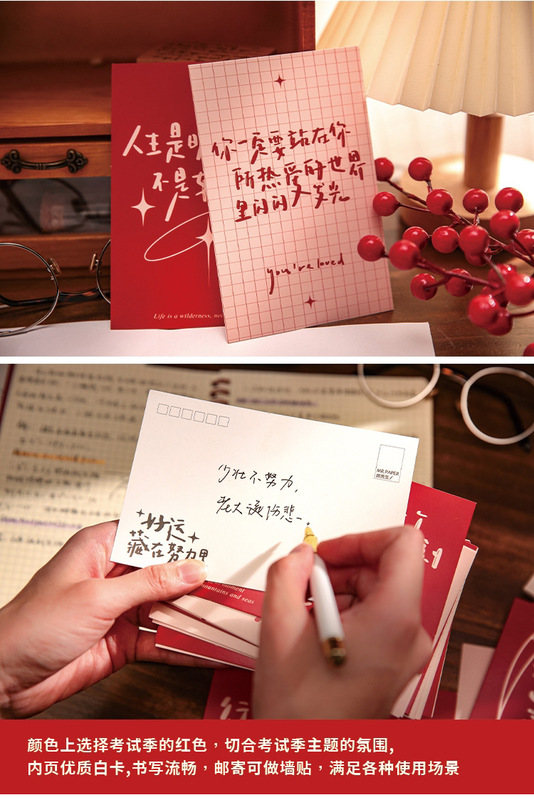 人生是
不是
Life is a wilderness,
你一定要站在你
所热爱的世界
里闪闪发光
you're loved
MR.PAPER
少壮不努力,
老大徒伤悲
好运
藏在努力里
mountains and seas
颜色上选择考试季的红色，切合考试季主题的氛围,
内页优质白卡,书写流畅，邮寄可做墙贴，满足各种使用场景